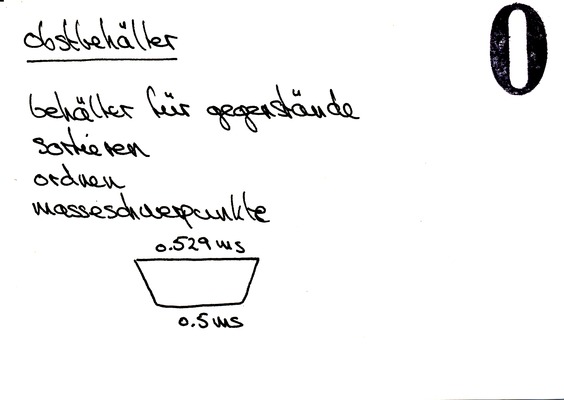 obstbehälter
0
behälter für gegenstände
sortieren
ordnen
masseschwerpunkte
0.529 ms
0.5 ms